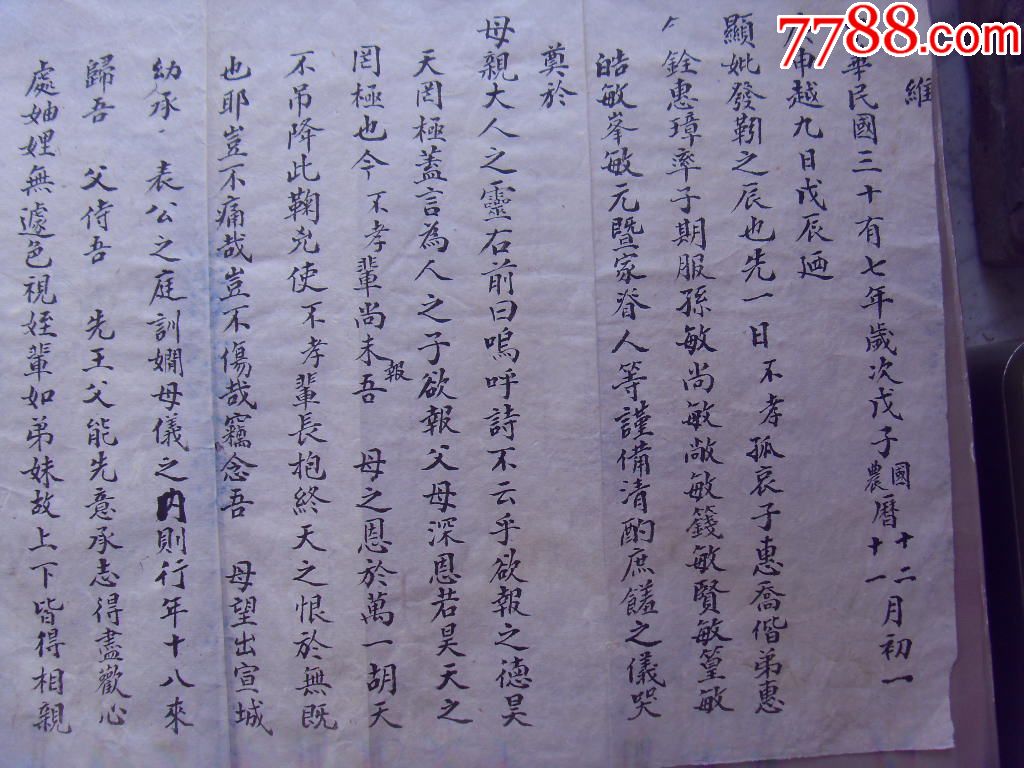 維
華民國三十有七年歲次戊子國農曆十二十一月初一
申越九日戊辰廼
顯妣發靷之辰也先一日不孝孤哀子惠喬偕弟惠
銓惠璋率子期服孫敏尚敏敞敏籛敏賢敏篁敏
皓敏峯敏元暨家眷人等謹備清酌庶饈之儀哭
奠於
母親大人之靈右前曰嗚呼詩不云乎欲報之德昊
天罔極蓋言為人之子欲報父母深恩若昊天之
罔極也今不孝輩尚未報吾 母之恩於萬一胡天
不吊降此鞠兇使不孝輩長抱終天之恨於無既
也耶豈不痛哉豈不傷哉竊念吾 母望出宣城
幼承 表公之庭訓嫺母儀之內則行年十八來
歸吾 父侍吾 先王父能先意承志得盡歡心
處妯娌無遽色視姪輩如弟妹故上下皆得相親
7788.com